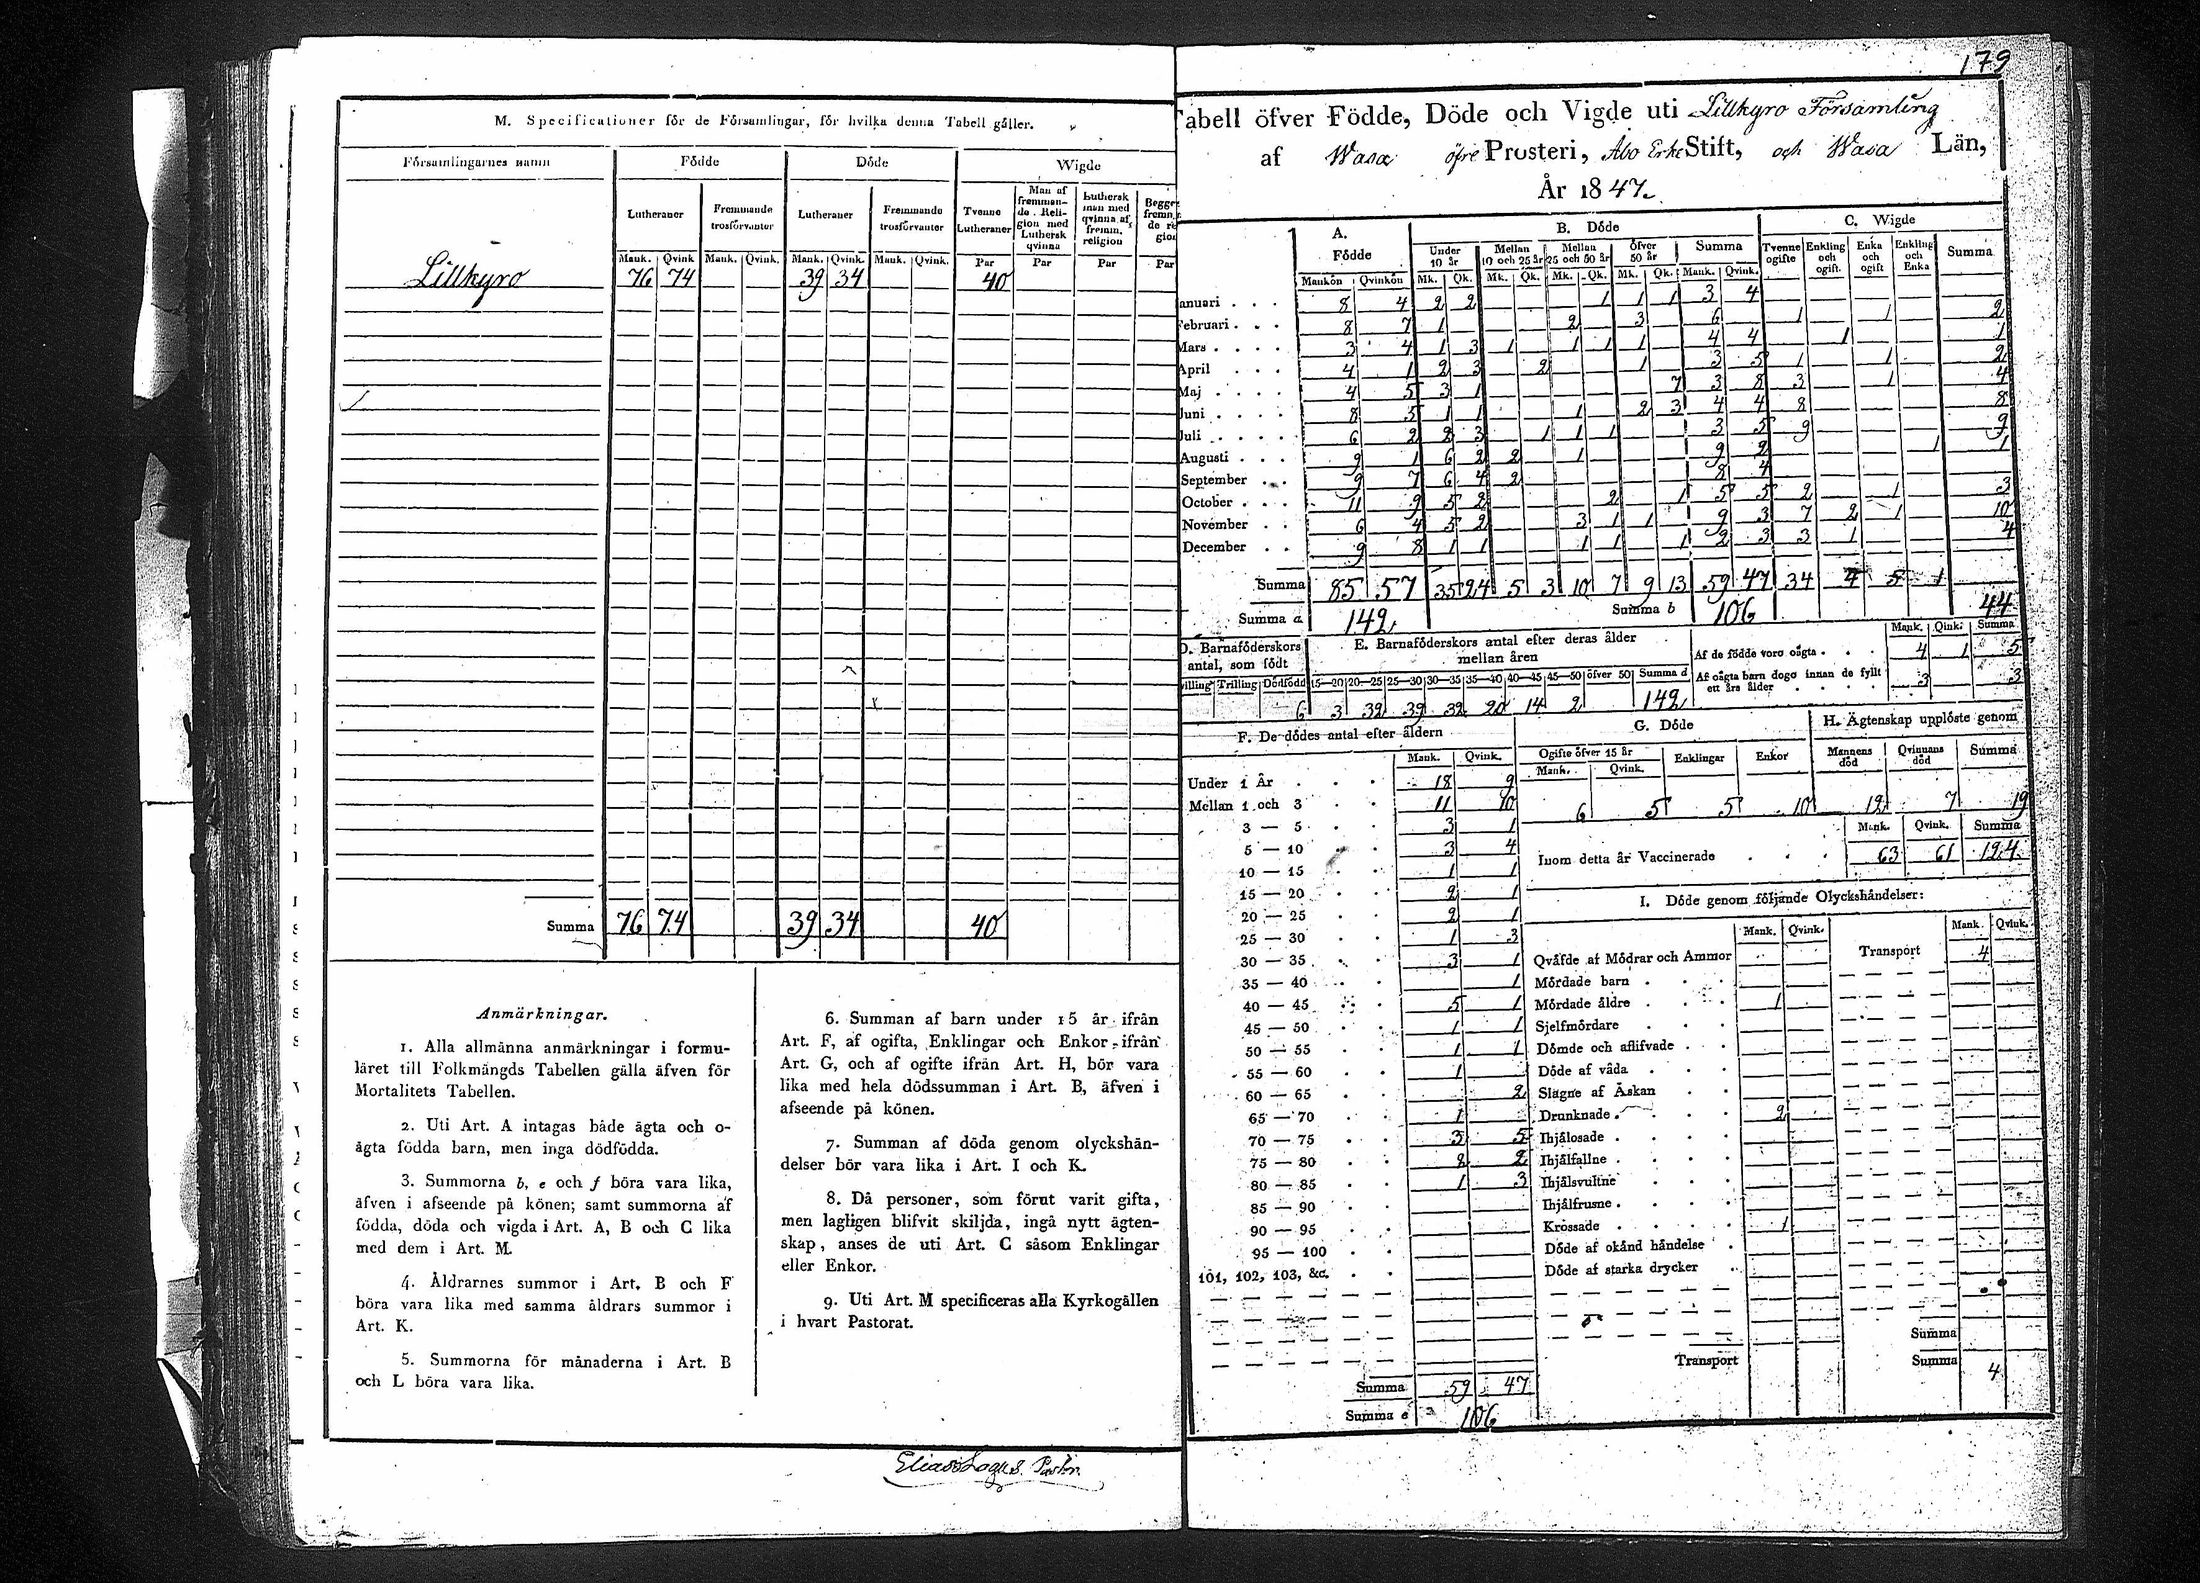 M. Specificationer för de Församlingar, för hvilka denna Tabell gäller.
Församlingarnes namn | Födde | Döde | Wigde
Lutheraner | Fremmande trosförvanter | Lutheraner | Fremmande trosförvanter | Tvenne Lutheraner | Man af fremmande Religion med Luthersk qvinna | Luthersk man med qvinna af fremm. religion
Mank. | Qvink | Mank. | Qvink. | Mank. | Qvink. | Mank. | Qvink. | Par | Par | Par | Par
Lillkyro | 76 | 74 | 39 | 34 | 40
Summa | 76 | 74 | 39 | 34 | 40
Anmärkningar.
1. Alla allmänna anmärkningar i formu-
läret till Folkmängds Tabellen gälla äfven för
Mortalitets Tabellen.
2. Uti Art. A intagas både ägta och o-
ägta födda barn, men inga dödfödda.
3. Summorna b, e och f böra vara lika,
äfven i afseende på könen; samt summorna af
födda, döda och vigda i Art. A, B och C lika
med dem i Art. M.
4. Åldrarnes summor i Art. B och F
böra vara lika med samma åldrars summor i
Art. K.
5. Summorna för månaderna i Art. B
och L böra vara lika.
6. Summan af barn under 15 år ifrån
Art. F, af ogifta, Enklingar och Enkor ifrån
Art. G, och af ogifte ifrån Art. H, bör vara
lika med hela dödssumman i Art. B, äfven i
afseende på könen.
7. Summan af döda genom olyckshän-
delser bör vara lika i Art. I och K.
8. Då personer, som förut varit gifta,
men lagligen blifvit skiljda, ingå nytt ägten-
skap, anses de uti Art. C såsom Enklingar
eller Enkor.
9. Uti Art. M specificeras alla Kyrkogällen
i hvart Pastorat.
Elias Lagus. Pastor.
179
Tabell öfver Födde, Döde och Vigde uti Lillkyro Församling
af Wasa öfre Prosteri, Åbo Erke Stift, och Wasa Län,
År 1847.
A. Födde | B. Döde | C. Wigde
Under 10 år | Mellan 10 och 25 år | Mellan 25 och 50 år | Öfver 50 år | Summa | Tvenne ogifte | Enkling och ogift. | Enka och ogift | Enkling och Enka | Summa
Mankön | Qvinkön | Mk. | Qk. | Mk. | Qk. | Mk. | Qk. | Mk. | Qk. | Mank. | Qvink.
anuari | 8 | 4 | 2 | 2 | 1 | 1 | 1 | 3 | 4
Februari | 8 | 7 | 1 | 2 | 3 | 6 | 1 | 1 | 2
Mars | 3 | 4 | 1 | 3 | 1 | 1 | 1 | 1 | 4 | 4 | 1 | 1
April | 4 | 1 | 2 | 3 | 2 | 1 | 3 | 5 | 1 | 1 | 2
Maj | 4 | 5 | 3 | 1 | 7 | 3 | 8 | 3 | 1 | 4
Juni | 8 | 5 | 1 | 1 | 1 | 2 | 3 | 4 | 4 | 8 | 8
Juli | 6 | 2 | 2 | 3 | 1 | 1 | 1 | 3 | 5 | 9 | 9
Augusti | 9 | 1 | 6 | 2 | 2 | 1 | 9 | 2 | 1 | 1
September | 9 | 7 | 6 | 4 | 2 | 8 | 4
October | 11 | 9 | 5 | 2 | 2 | 1 | 5 | 5 | 2 | 1 | 3
November | 6 | 4 | 5 | 2 | 3 | 1 | 1 | 9 | 3 | 7 | 2 | 1 | 10
December | 9 | 8 | 1 | 1 | 1 | 1 | 1 | 2 | 3 | 3 | 1 | 4
Summa | 85 | 57 | 35 | 24 | 5 | 3 | 10 | 7 | 9 | 13 | 59 | 47 | 34 | 4 | 5 | 1
Summa a | 142 | Summa b | 106 | 44
D. Barnaföderskors antal, som födt
illing | Trilling | Dödfödd
6
E. Barnaföderskors antal efter deras ålder mellan åren
15—20 | 20—25 | 25—30 | 30—35 | 35—40 | 40—45 | 45—50 | öfver 50 | Summa d
3 | 32 | 39 | 32 | 20 | 14 | 2 | 142
Mank. | Qink. | Summa
Af de födde voro oägta | 4 | 1 | 5
Af oägta barn dogo innan de fyllt ett års ålder | 3 | 3
F. De dödes antal efter åldern
Mank. | Qvink.
Under 1 År | 18 | 9
Mellan 1 och 3 | 11 | 10
3 — 5 | 3 | 1
5 — 10 | 3 | 4
10 — 15 | 1 | 1
15 — 20 | 2 | 1
20 — 25 | 2 | 1
25 — 30 | 1 | 3
30 — 35 | 3 | 1
35 — 40 | 1
40 — 45 | 5 | 1
45 — 50 | 1 | 1
50 — 55 | 1 | 1
55 — 60 | 1
60 — 65 | 2
65 — 70 | 1
70 — 75 | 3 | 5
75 — 80 | 2 | 2
80 — 85 | 1 | 3
85 — 90
90 — 95
95 — 100
101, 102, 103, &c.
Summa | 59 | 47
Summa e | 106
G. Döde
Ogifte öfver 15 år | Enklingar | Enkor
Mank. | Qvink.
6 | 5 | 5 | 10
H. Ägtenskap upplöste genom
Mannens död | Qvinnans död | Summa
12 | 7 | 19
Mank. | Qvink. | Summa
Inom detta år Vaccinerade | 63 | 61 | 124
I. Döde genom följande Olyckshändelser:
Mank. | Qvink. | Transport | Mank. | Qvink.
4
Qväfde af Mödrar och Ammor
Mördade barn
Mördade äldre | 1
Sjelfmördare
Dömde och aflifvade
Döde af våda
Slagne af Åskan
Drunknade | 2
Ihjälosade
Ihjälfallne
Ihjälsvultne
Ihjälfrusne
Krossade | 1
Döde af okänd händelse
Döde af starka drycker
Transport
Summa
Summa | 4